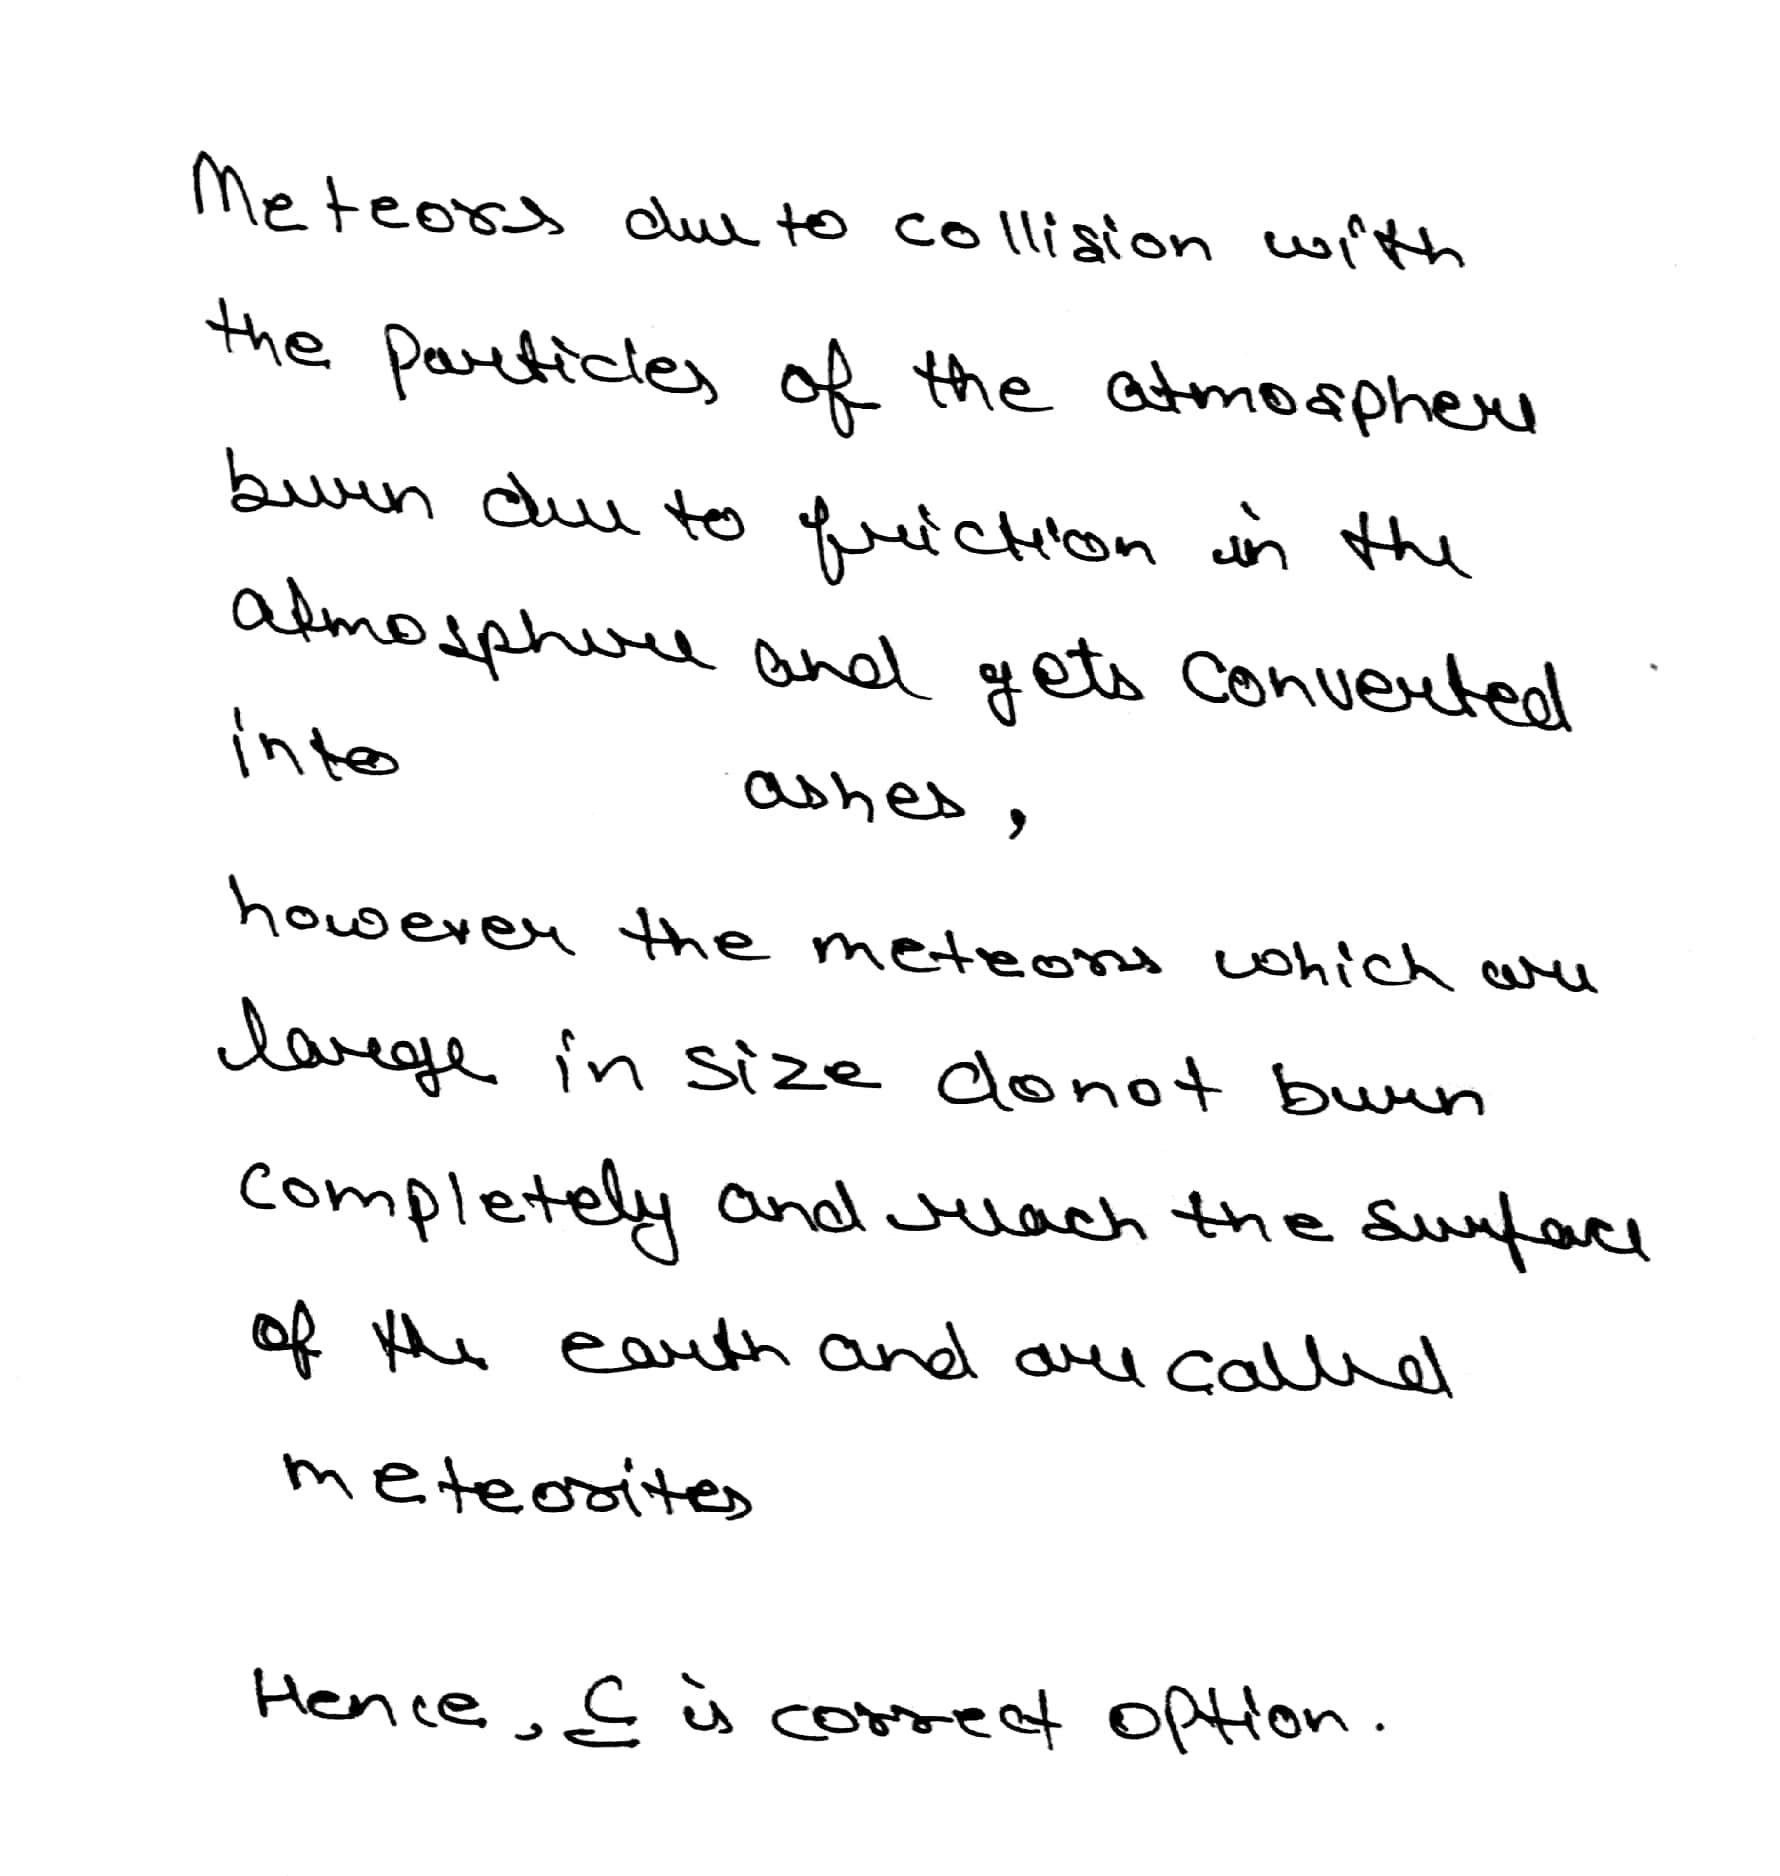 Meteors due to collision with
the particles of the atmosphere
burn due to friction in the
atmosphere and gets converted
into ashes,
however the meteors which are
large in size donot burn
completely and reach the surface
of the earth and are called
meteorites
Hence, C is correct option.